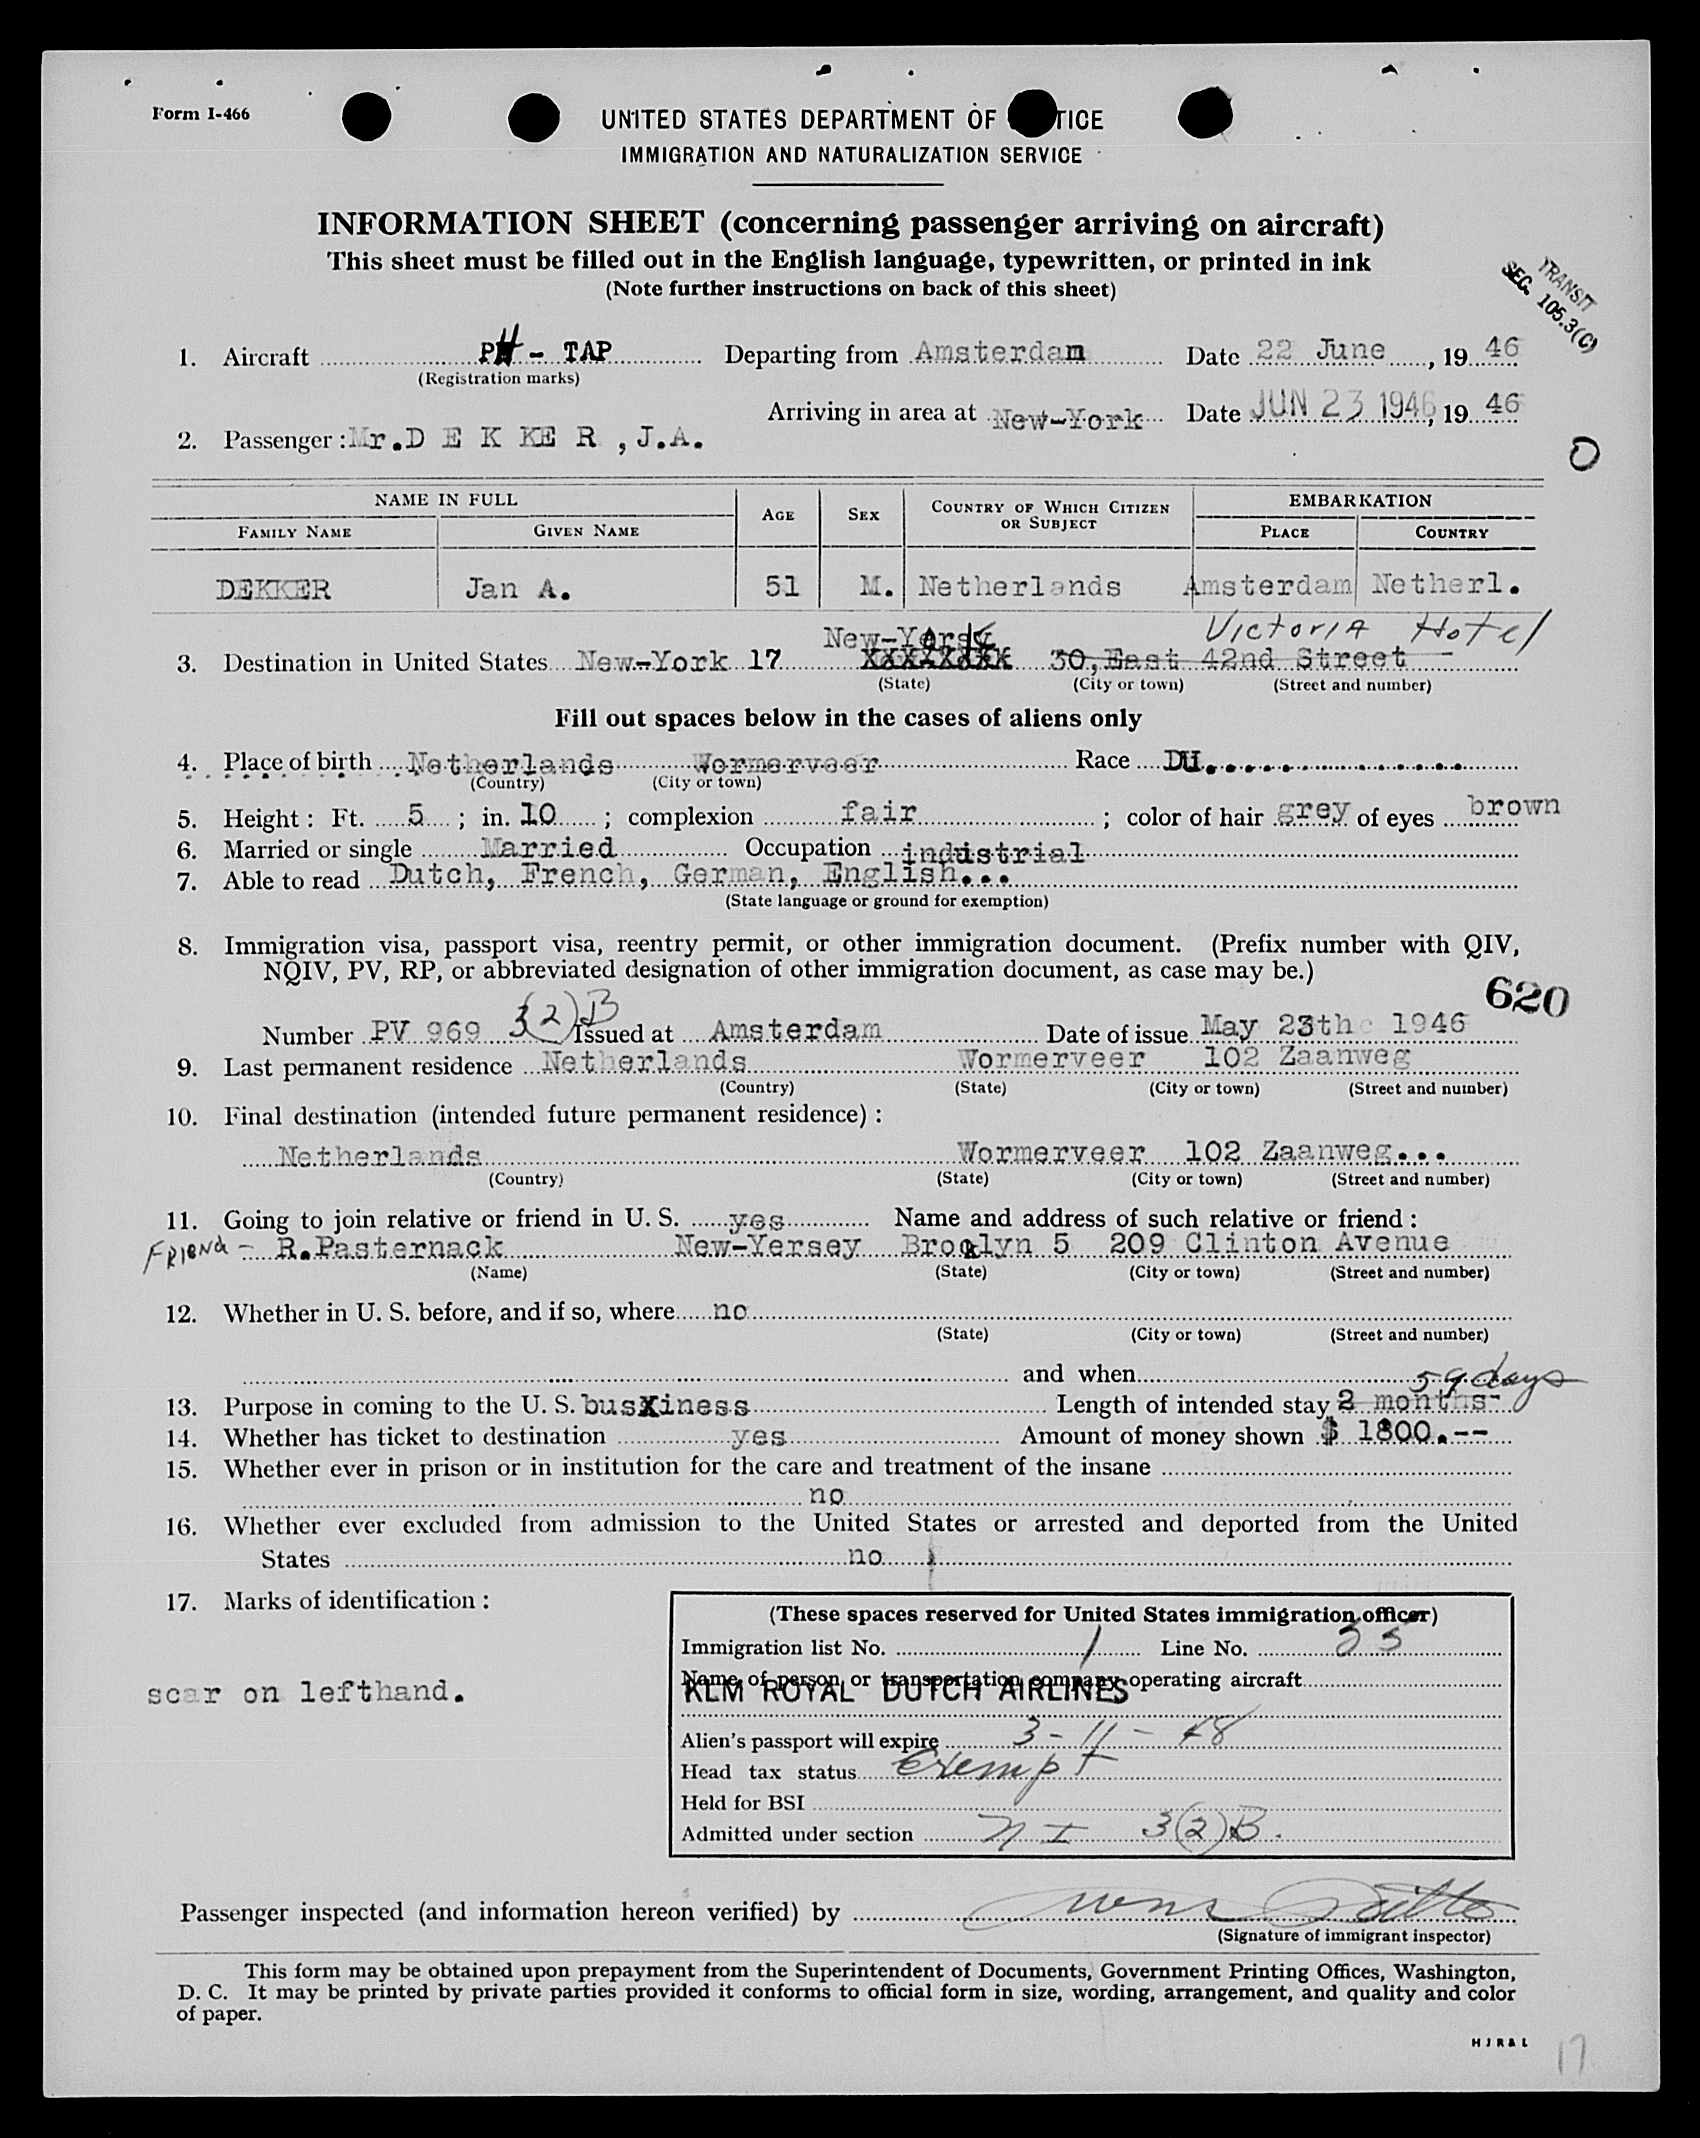 Form I-466
UNITED STATES DEPARTMENT OF TICE
IMMIGRATION AND NATURALIZATION SERVICE
INFORMATION SHEET (concerning passenger arriving on aircraft)
This sheet must be filled out in the English language, typewritten, or printed in ink
(Note further instructions on back of this sheet)
TRANSIT
SEC. 105.3(C)
1. Aircraft PH - TAP Departing from Amsterdam Date 22 June, 19 46
(Registration marks)
Arriving in area at New-York Date JUN 23 1946, 19 46
2. Passenger : Mr.D E K KE R , J.A.
O
NAME IN FULL AGE SEX COUNTRY OF WHICH CITIZEN OR SUBJECT EMBARKATION
FAMILY NAME GIVEN NAME PLACE COUNTRY
DEKKER Jan A. 51 M. Netherlands Amsterdam Netherl.
Victoria Hotel
3. Destination in United States New-York 17 30, East 42nd Street
(State) (City or town) (Street and number)
Fill out spaces below in the cases of aliens only
4. Place of birth Netherlands Wormerveer Race DU.
(Country) (City or town)
5. Height : Ft. 5 ; in. 10 ; complexion fair ; color of hair grey of eyes brown
6. Married or single Married Occupation industrial
7. Able to read Dutch, French, German, English...
(State language or ground for exemption)
8. Immigration visa, passport visa, reentry permit, or other immigration document. (Prefix number with QIV,
NQIV, PV, RP, or abbreviated designation of other immigration document, as case may be.)
620
Number PV 969 3(2)B Issued at Amsterdam Date of issue May 23th 1946
9. Last permanent residence Netherlands Wormerveer 102 Zaanweg
(Country) (State) (City or town) (Street and number)
10. Final destination (intended future permanent residence) :
Netherlands Wormerveer 102 Zaanweg...
(Country) (State) (City or town) (Street and number)
11. Going to join relative or friend in U. S. yes Name and address of such relative or friend :
Friend - R.Pasternack New-Yersey Brooklyn 5 209 Clinton Avenue
(Name) (State) (City or town) (Street and number)
12. Whether in U. S. before, and if so, where no
(State) (City or town) (Street and number)
and when
59 days
13. Purpose in coming to the U. S. busXiness Length of intended stay 2 months
14. Whether has ticket to destination yes Amount of money shown $ 1800.--
15. Whether ever in prison or in institution for the care and treatment of the insane
no
16. Whether ever excluded from admission to the United States or arrested and deported from the United
States no
17. Marks of identification :
scar on lefthand.
(These spaces reserved for United States immigration officer)
Immigration list No. 1 Line No. 35
Name of person or transportation company operating aircraft
KLM ROYAL DUTCH AIRLINES
Alien's passport will expire 3 - 11 - 48
Head tax status Exempt
Held for BSI
Admitted under section NI 3(2)B.
Passenger inspected (and information hereon verified) by
(Signature of immigrant inspector)
This form may be obtained upon prepayment from the Superintendent of Documents, Government Printing Offices, Washington,
D. C. It may be printed by private parties provided it conforms to official form in size, wording, arrangement, and quality and color
of paper.
H J R & L
17